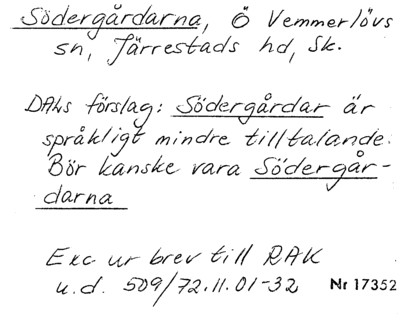 Södergårdarna, Ö Vemmerlövs
sn, Järrestads hd, Sk.
DALs förslag: Södergårdar är
språkligt mindre tilltalande.
Bör kanske vara Södergår-
darna
Exc ur brev till RAK
u.d. 509/72.11.01-32 Nr 17352